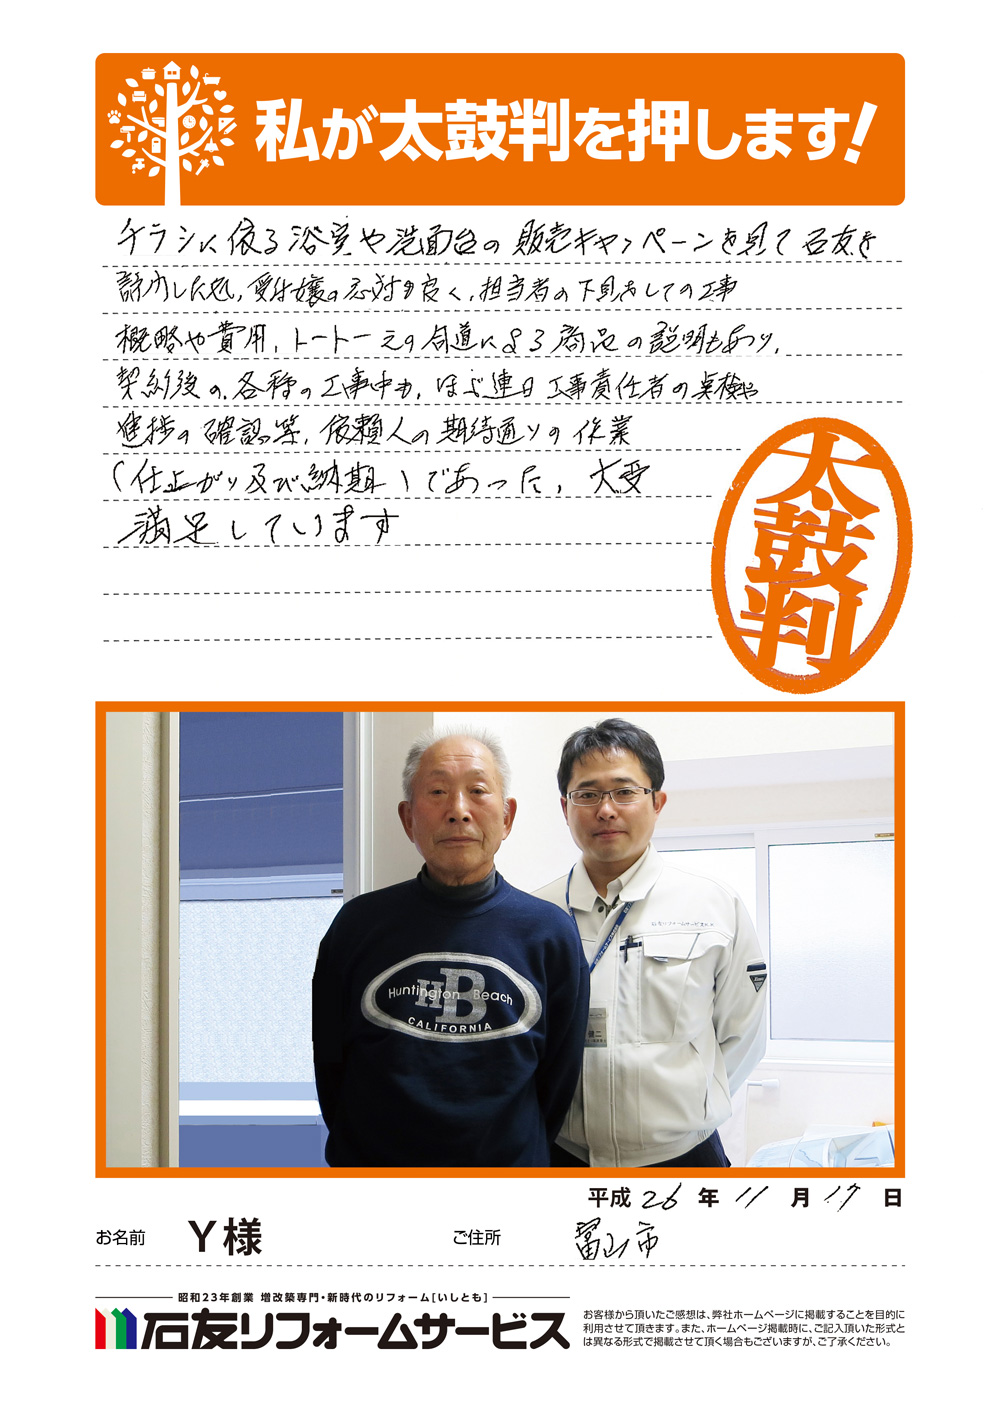 私が太鼓判を押します!
チラシに依る浴室や洗面台の販売キャンペーンを見て石友を
訪問した処,受付嬢の応対も良く,担当者の下見をしての工事
概略や費用,トートーえの同道による商品の説明もあり,
契約後の,各種の工事中も,ほぶ連日工事責任者の点検や
進捗の確認等,依頼人の期待通りの作業
(仕上がり及び納期)であった,大変
満足しています
太鼓判
石友リフォームサービス
Huntington Beach
HB
CALIFORNIA
平成26年11月17日
お名前 Y様 ご住所 富山市
昭和23年創業 増改築専門・新時代のリフォーム[いしとも]
石友リフォームサービス
お客様から頂いたご感想は、弊社ホームページに掲載することを目的に
利用させて頂きます。また、ホームページ掲載時に、ご記入頂いた形式と
は異なる形式で掲載させて頂く場合もございますが、ご了承ください。